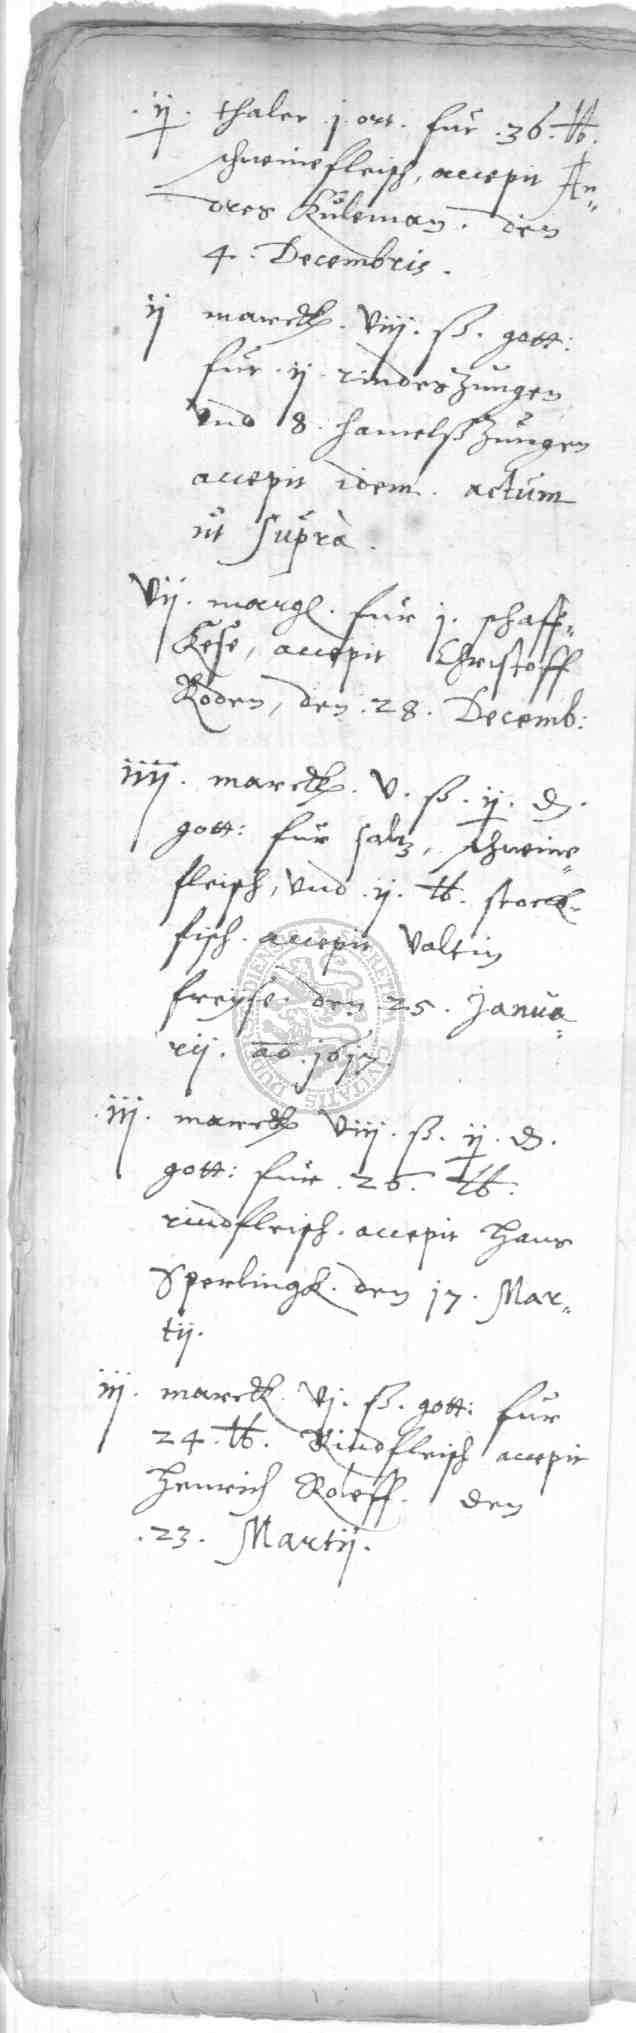 .ij. thaler .j. ort. für .36. ℔.
schweinefleisch, accepit An„
dres Küleman. den
4. Decembris.
ij marck. viij. ß. gott:
für .ij. rindeszungen
vnd 8. hamelßzungen
accepit idem. actum
ut suprà.
vij. margl. für j. schaff„
Kese, accepit Christoff
Roden, den .28. Decemb:
iiij. marck. v. ß. ij. ₰.
gott: für saltz, schweine„
fleisch, vnd .ij. ℔. stock„
fisch. accepit Valtin
freyse. den 25. Janua„
rij. ao. 1617.
iij. marck viij. ß. ij. ₰.
gott: für .26. ℔.
rindfleisch. accepit Hans
Sperlingk. den 17. Mar„
tij.
iij. marck. vj. ß. gott: für
24. ℔. Rindfleisch accepit
Henrich Roleff. den
.23. Martij.